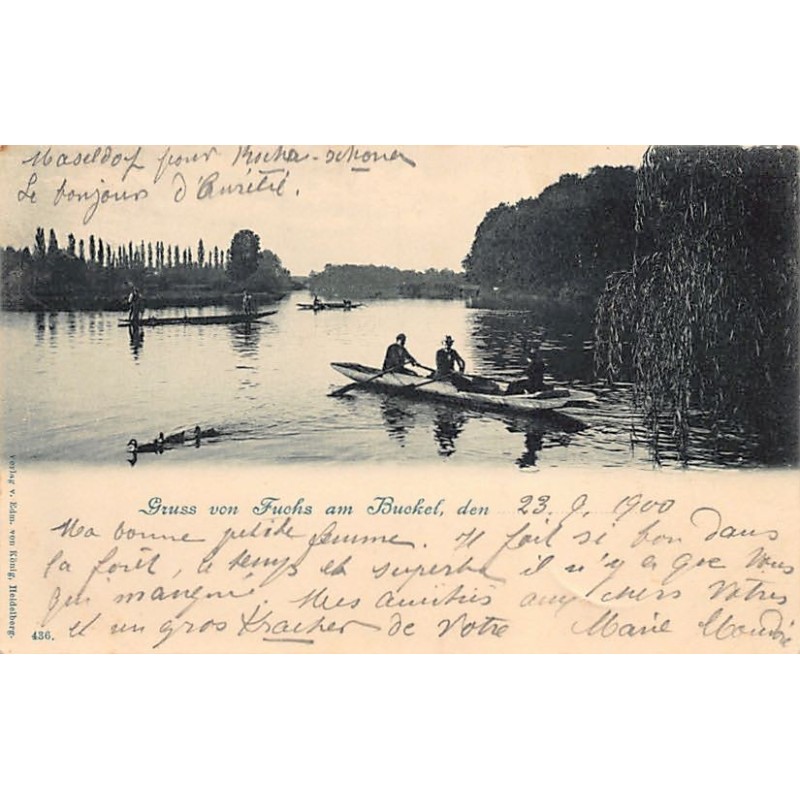 pour
Le bonjour d'Aurélié.
Gruss von Fuchs am Buckel, den 23. 9. 1900
Ma bonne petite femme. Il fait si bon dans
la forêt, le temps est superbe il n'y a que vous
qui manquié. Mes amitiés aux chers Vôtres
et un gros Kracher de Votre Marie
436.
Verlag v. Edm. von König, Heidelberg.